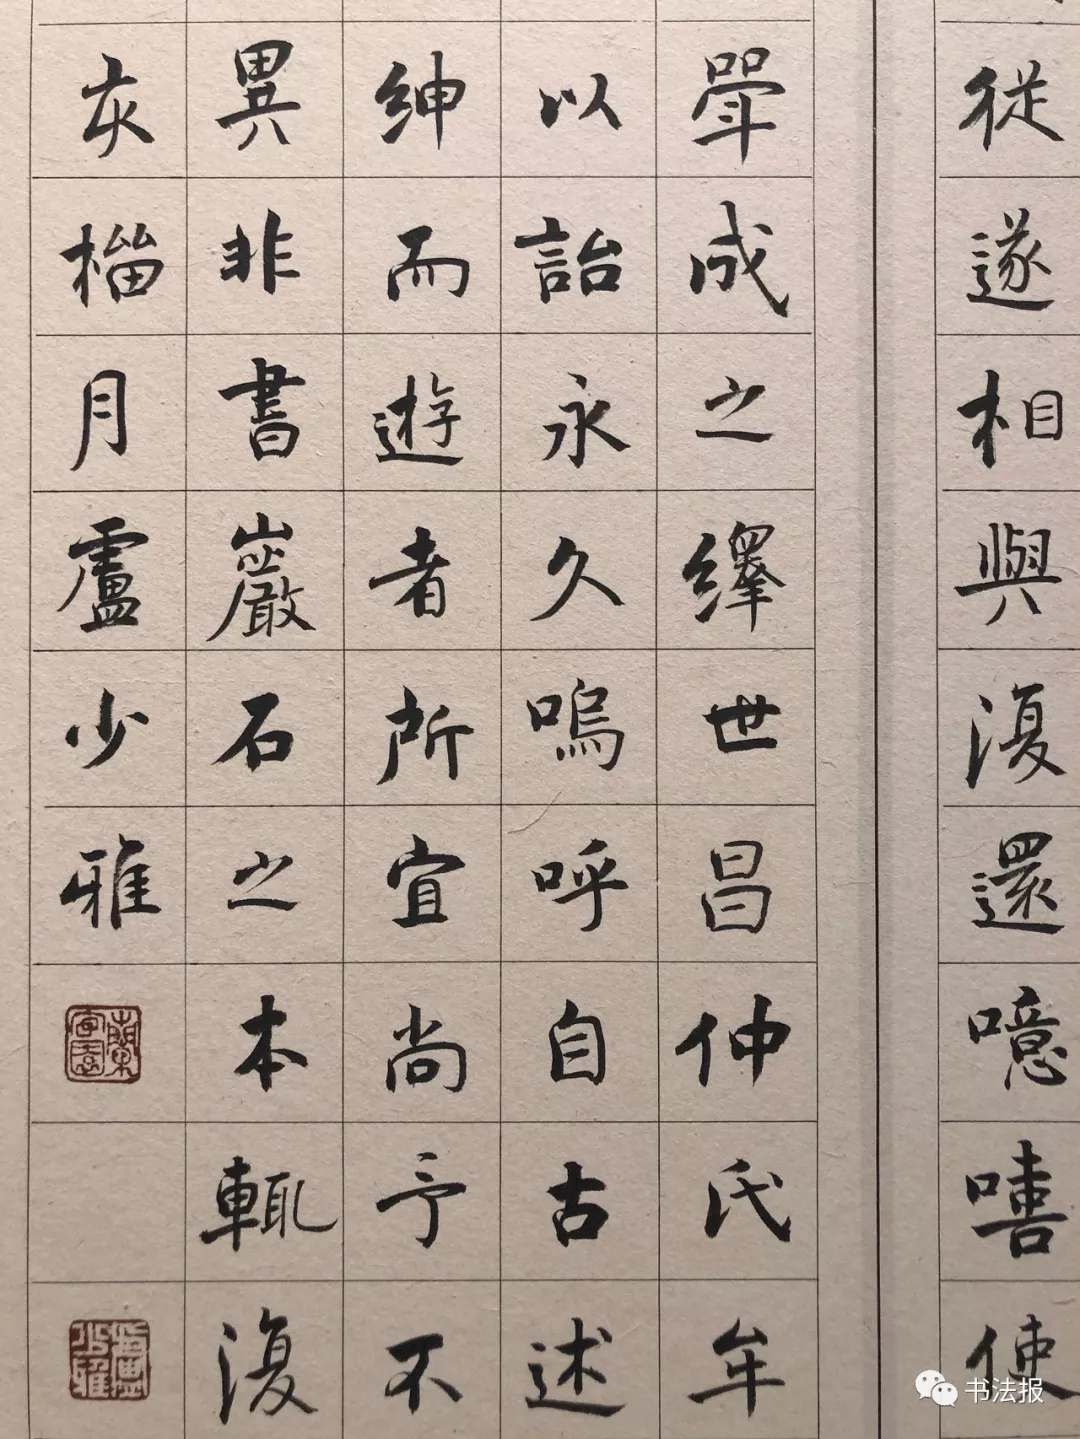 從遂相與復還噫嘻使
斝成之繹世昌仲氏牟
以詒永久嗚呼自古述
紳而遊者所宜尚予不
異非書巖石之本輒復
灰橊月盧少雅
蘭言室
盧少雅
书法报